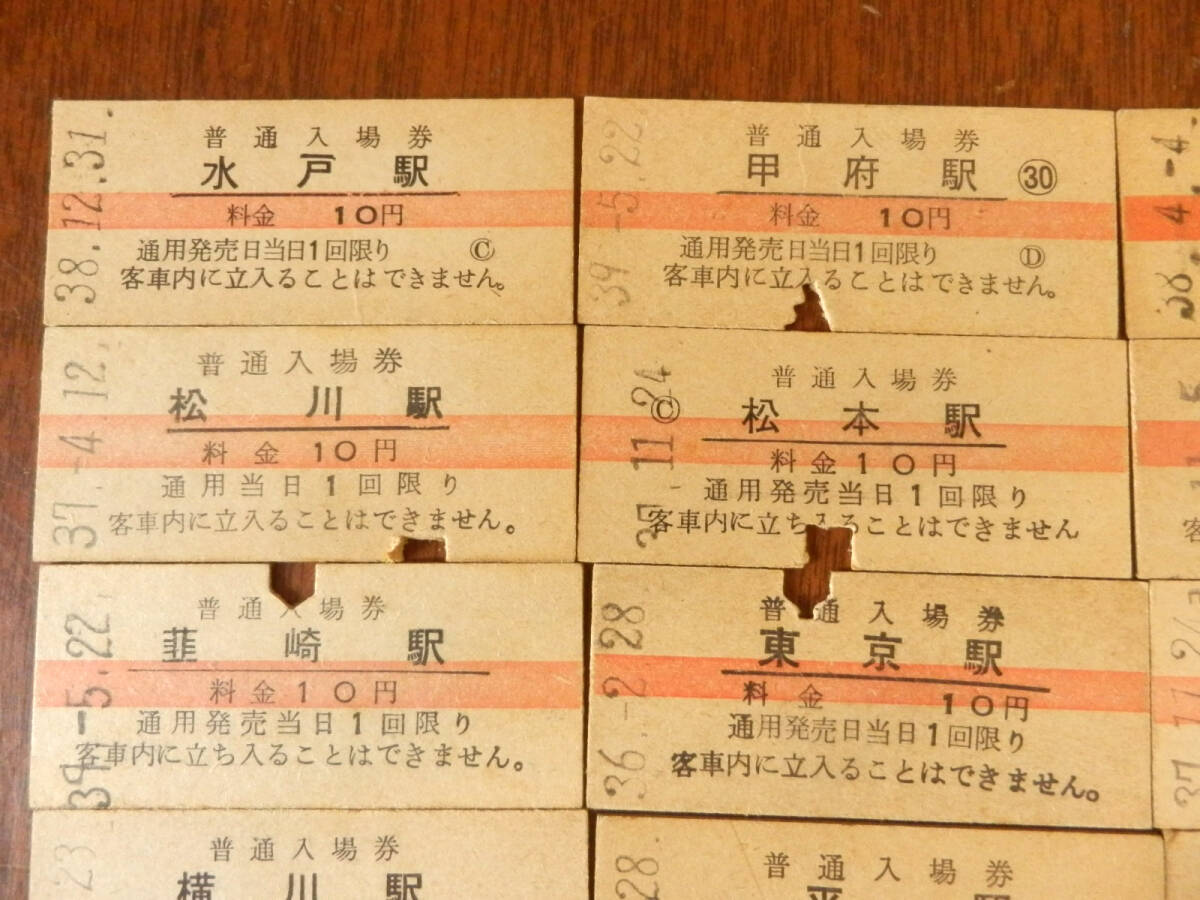 38.12.31.
普通入場券
水戸駅
料金 10円
通用発売日当日1回限り Ⓒ
客車内に立入ることはできません。
39.-5.22
普通入場券
甲府駅 ㉚
料金 10円
通用発売日当日1回限り Ⓓ
客車内に立入ることはできません。
38.-4.-4.
37.-4.12.
普通入場券
松川駅
料金10円
通用当日1回限り
客車内に立入ることはできません。
37.11.24
普通入場券
Ⓒ 松本駅
料金10円
通用発売当日1回限り
客車内に立ち入ることはできません
39.-5.22.
普通入場券
韮崎駅
料金10円
通用発売当日1回限り
客車内に立ち入ることはできません。
36.-2.28
普通入場券
東京駅
料金 10円
通用発売日当日1回限り
客車内に立入ることはできません。
23
普通入場券
横川駅
28.
普通入場券